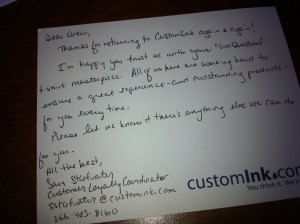 Dear Drew,
Thanks for returning to CustomInk again & again!
I'm happy you trust us with your "Got Question?"
t-shirt masterpiece. All of us here are working hard to
ensure a great experience - and outstanding products -
for you every time.
Please let us know if there's anything else we can do
for you.
All the best,
Customer Loyalty Coordinator
@customink.com
customink.com
You think it. We